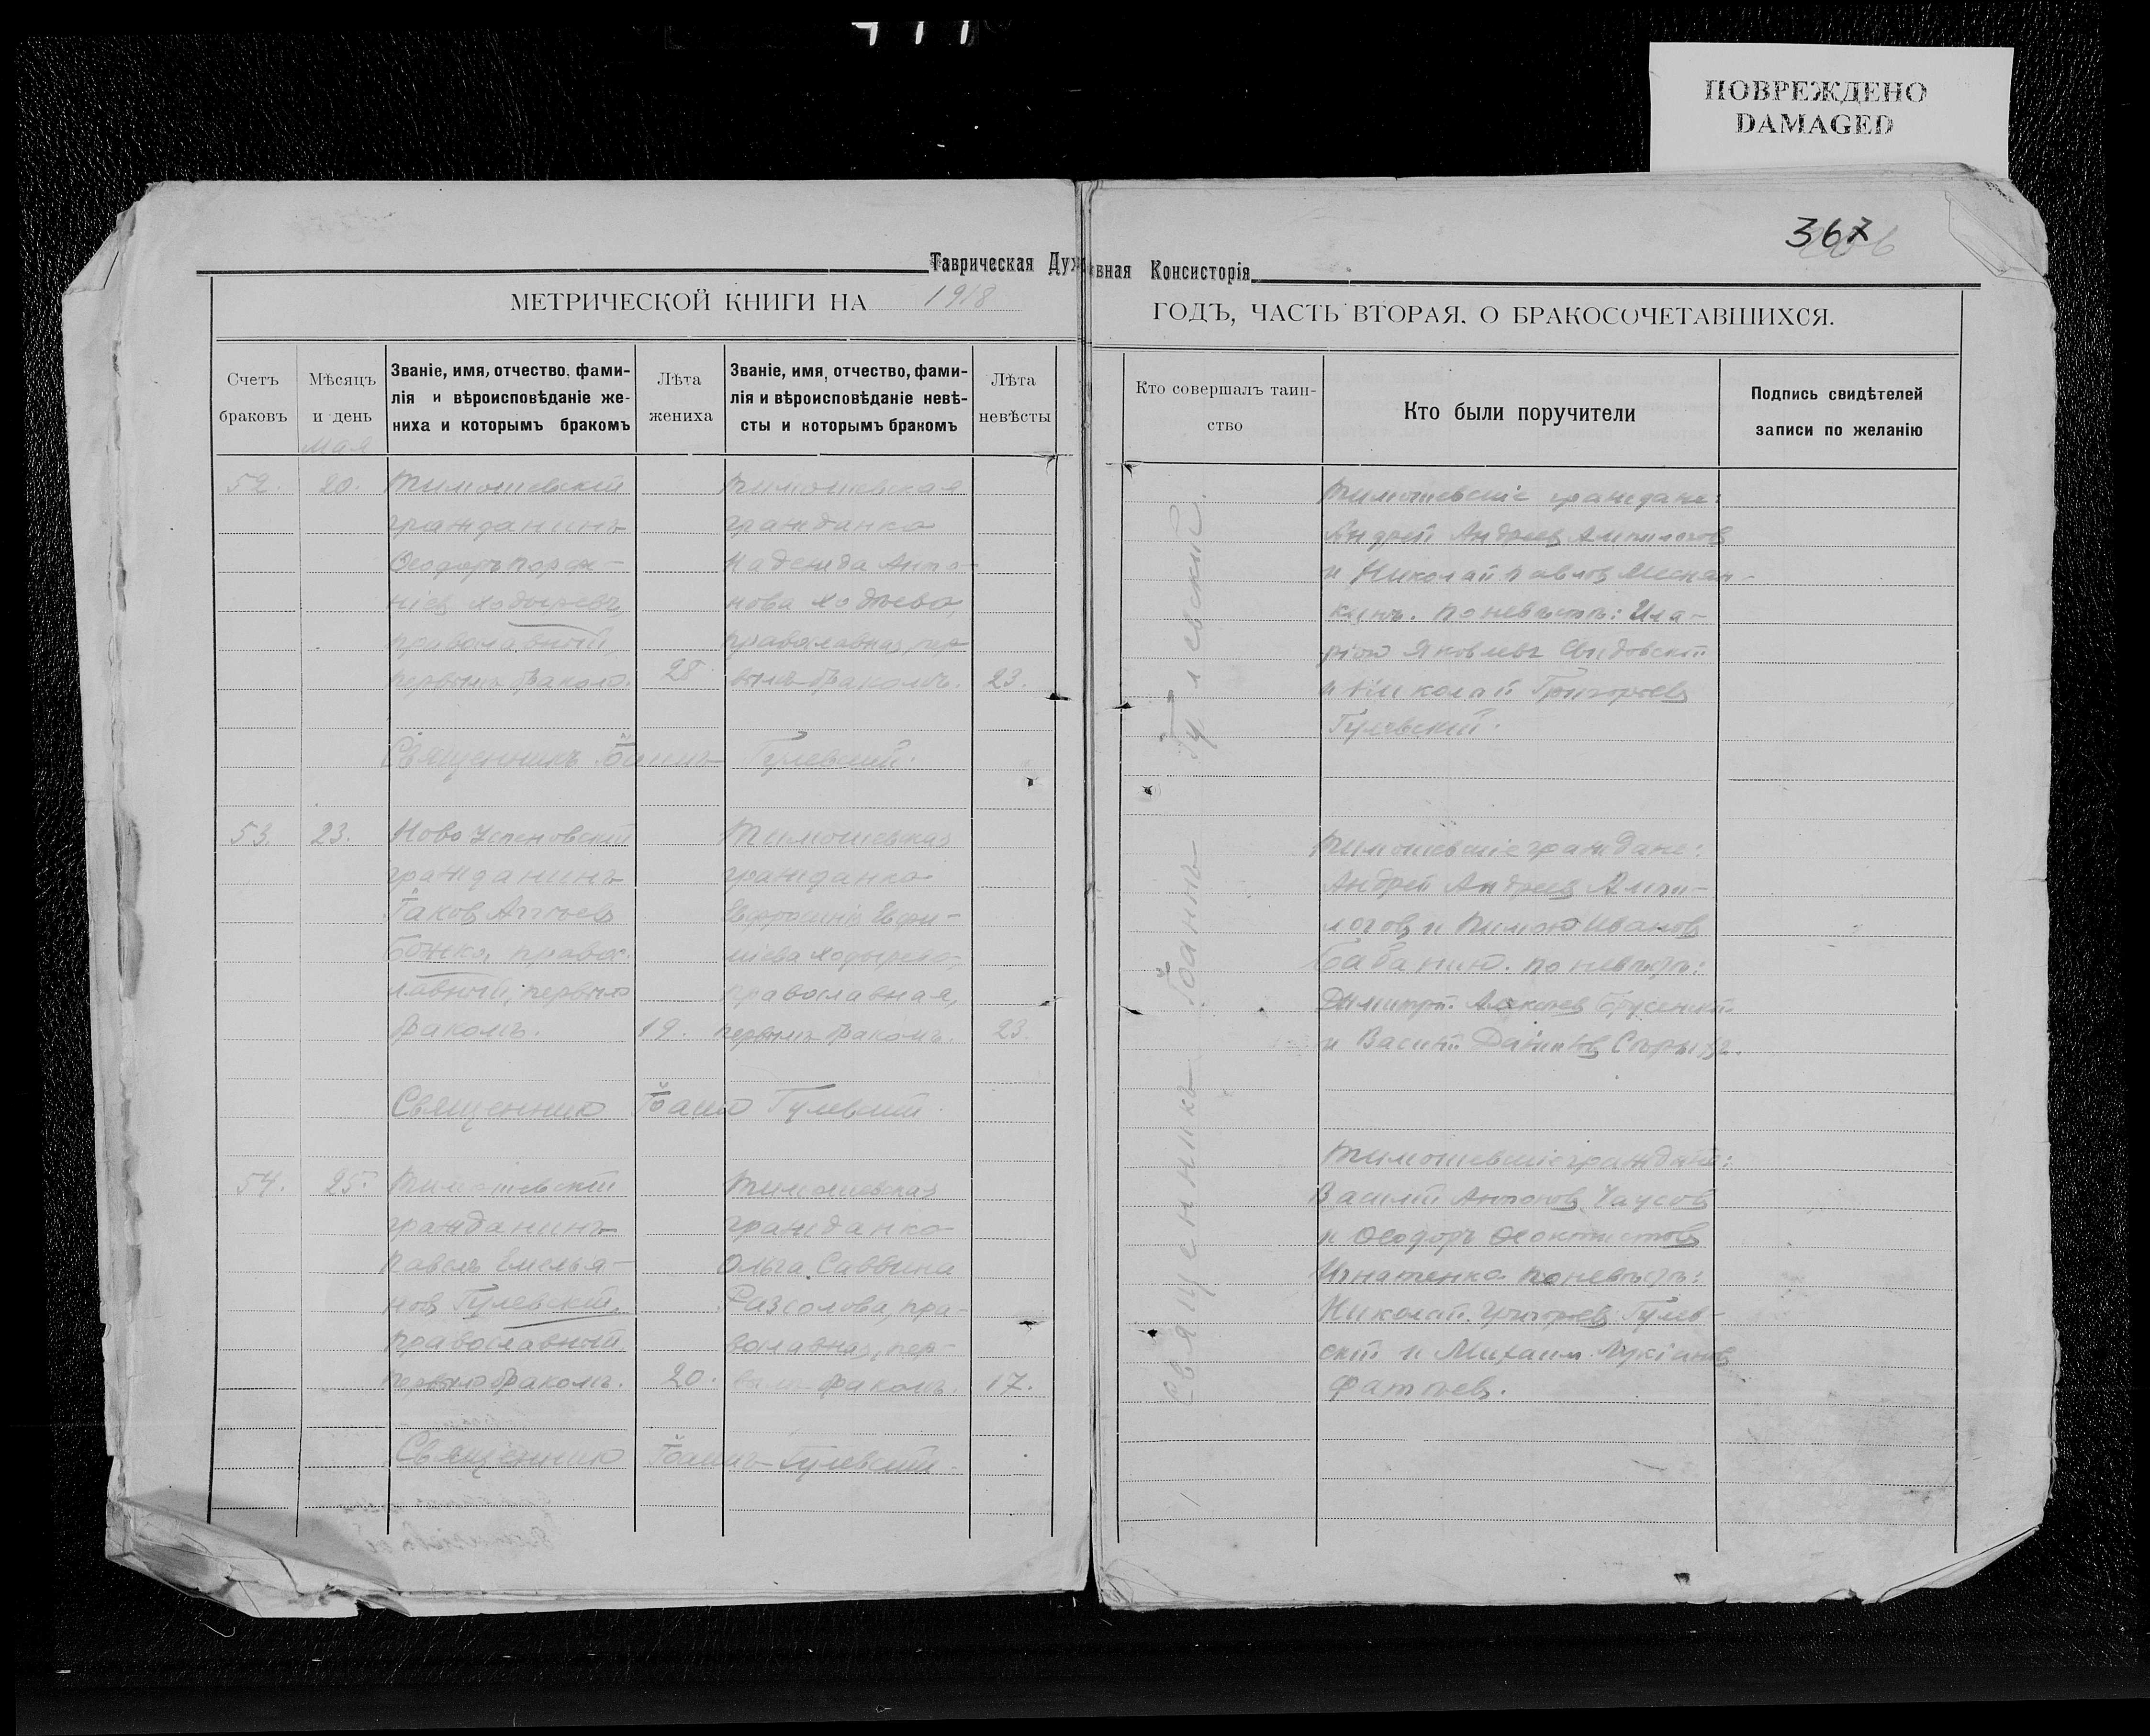 ПОВРЕЖДЕНО
DAMAGED
367
Таврическая Духовная Консисторія
МЕТРИЧЕСКОЙ КНИГИ НА 1918
ГОДЪ, ЧАСТЬ ВТОРАЯ, О БРАКОСОЧЕТАВШИХСЯ.
Счетъ браковъ
Мѣсяцъ и день
Званіе, имя, отчество, фами-
лія и вѣроисповѣданіе же-
ниха и которымъ бракомъ
Лѣта жениха
Званіе, имя, отчество, фами-
лія и вѣроисповѣданіе невѣ-
сты и которымъ бракомъ
Лѣта невѣсты
Кто совершалъ таин-
ство
Кто были поручители
Подпись свидѣтелей
записи по желанію
мая
52.
20.
Тимошевскій
гражданинъ
Ѳеодоръ
ніев Ходыревъ,
православный,
первымъ бракомъ.
28
Тимошевская
гражданка
Надежда Анто-
нова
православная, пер-
вымъ бракомъ.
23.
Священникъ Іоаннъ Гулевскій.
Тимошевскіе граждане:
Андрей Андреев Ампилогов
и Николай Павлов
кинъ. По невѣстѣ: Ила-
ріон Яковлевъ
и Николай Григорьев
Гулевскій.
53.
23.
Ново Успеновскій
гражданинъ
Іаков
Божко, право-
славный, первымъ
бракомъ.
19.
Тимошевская
гражданка
Евфросинія Евфи-
міева Ходырева,
православная,
первымъ бракомъ.
23.
Священникъ Іоаннъ Гулевскій
Тимошевскіе граждане:
Андрей Андреев Ампи-
логов и Тимоѳ Иванов
Бабанин. По невѣстѣ:
Димитрій Алексѣев
и Василій
54.
25.
Тимошевскій
гражданинъ
Павелъ Емелья-
нов Гулевскій,
православный,
первымъ бракомъ.
20.
Тимошевская
гражданка
Ольга Саввина
Разсолова, пра-
вославная, пер-
вымъ бракомъ.
17.
Священникъ Іоаннъ Гулевскій.
Тимошевскіе граждане:
Василій Антонов Чаусов
и Ѳеодоръ Ѳеоктистов
Игнатенко. По невѣстѣ:
Николай Григорьев Гулев-
скій и Михаил Лукіанов
Фатѣев.
Священникъ Іоаннъ Гулевскій.